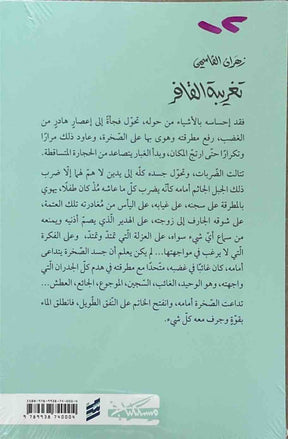 زهران القاسمي
تغريبة القافر
فقد إحساسه بالأشياء من حوله، تحوّل فجأةً إلى إعصارٍ هادرٍ من
الغضب، رفع مطرقته وهوى بها على الصّخرة، وعاود ذلك مرارًا
وتكرارًا حتّى ارتجّ المكان، وبدأ الغبار يتصاعد من الحجارة المتساقطة.
تتالت الضّربات، وتحوّل جسده كلّه إلى يدين لا همّ لهما إلّا ضرب
ذلك الجبل الجاثم أمامه كأنّه يضرب كلّ ما عاشه مُذْ كان طفلًا، يهوي
بالمطرقة على سجنه، على غيابه، على اليأس من مُغادرته تلك العتمة،
على شوقه الجارف إلى زوجته، على الهدير الّذي يصمّ أذنيه ويمنعه
من سماع أيّ شيء سواه، على العزلة الّتي تمتدّ وتمتدّ، وعلى الفكرة
الّتي لا يرغب في مواجهتها... لم يكن يعلم أن جسد الصّخرة يتداعى
أمامه، كان غائبًا في غضبه، متّحدًا مع مطرقته في هدم كلّ الجدران الّتي
واجهته، وهو الوحيد، الغائب، السّجين، الموجوع، الجائع، العطش...
تداعت الصّخرة أمامه، وانفتح الخاتم على النّفق الطّويل، فانطلق الماء
بقوّةٍ وجرف معه كلّ شيء.
ISBN: 978-9938-74-000-4
9 789938 740004
مسكيلياني